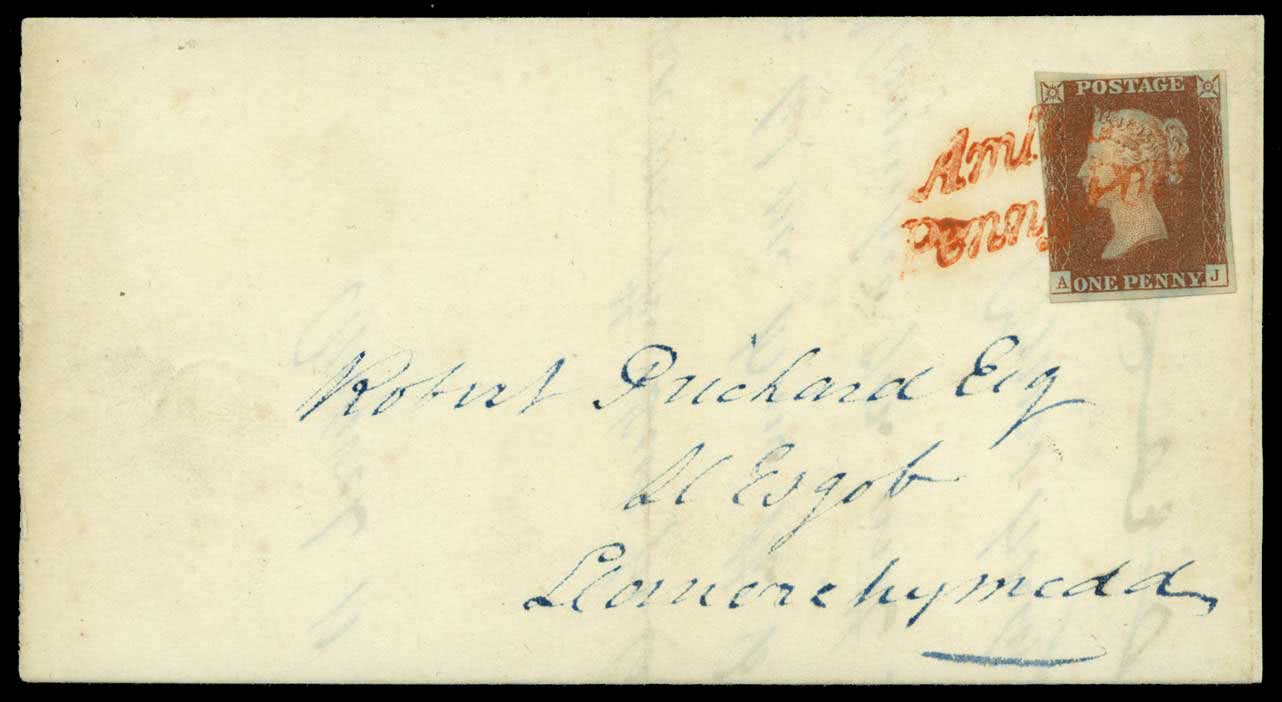 POSTAGE
Aml
Penny
A ONE PENNY. J
Robert Prichard Esq
Ll Esgob
Llanerchymedd